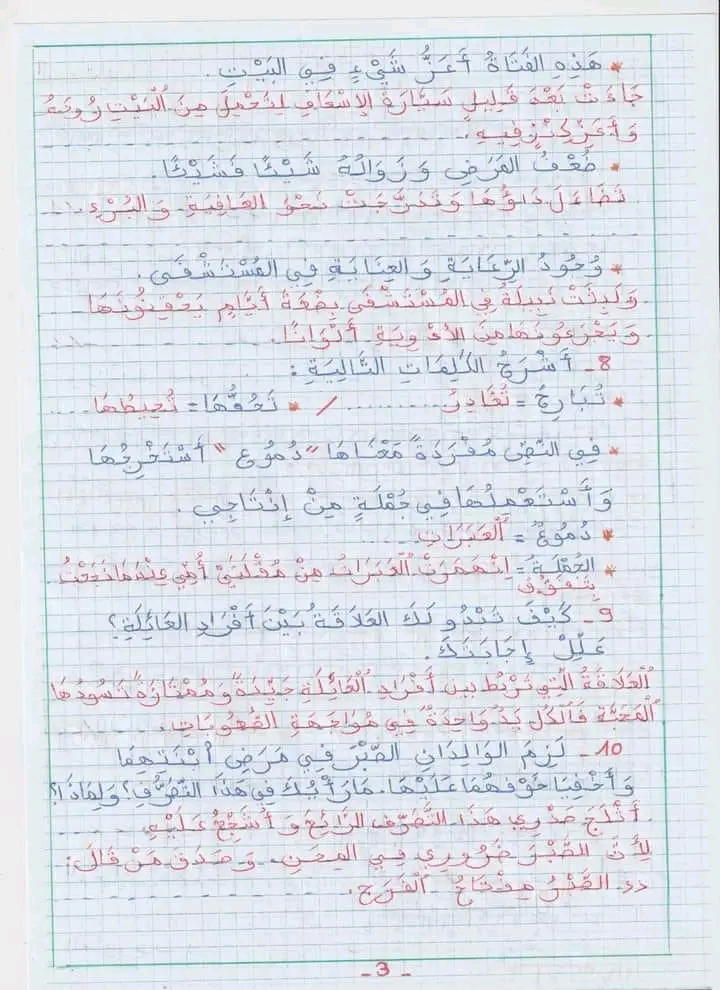 * هَذِهِ الفَتَاةُ أَعَزُّ شَيْءٍ فِي البَيْتِ.
جَاءَتْ بَعْدَ قَلِيلٍ سَيَّارَةُ الإِسْعَافِ لِتَحْمِلَ مِنَ الْبَيْتِ رُوحَهُ
وَأَعَزَّ كَنْزٍ فِيهِ.
* ضُعْفُ المَرَضِ وَزَوَالُهُ شَيْئًا فَشَيْئًا.
تَضَاءَلَ دَاؤُهَا وَتَدَرَّجَتْ نَحْوَ العَافِيَةِ وَالبُرْءِ.
* وُجُودُ الرِّعَايَةِ وَالعِنَايَةِ فِي المُسْتَشْفَى.
وَلَبِثَتْ نَبِيلَةُ فِي المُسْتَشْفَى بِضْعَةَ أَيَّامٍ يَحْقِنُونَهَا
وَيُجَرِّعُونَهَا مِنَ الأَدْوِيَةِ أَلْوَانًا.
8- أَشْرَحُ الكَلِمَاتِ التَّالِيَةِ :
* تُبَارِحُ = تُغَادِرُ / * تَحُفُّهَا = تُحِيطُهَا
* فِي النَّصِّ مُفْرَدَةٌ مَعْنَاهَا "دُمُوع" أَسْتَخْرِجُهَا
وَأَسْتَعْمِلُهَا فِي جُمْلَةٍ مِنْ إِنْتَاجِي.
* دُمُوعٌ = الْعَبَرَاتِ
* الجُمْلَةُ = اِنْهَمَرَتْ الْعَبَرَاتُ مِنْ مُقْلَتَيْ أُمِّي عِنْدَمَا نَجَحْتُ
بِتَفَوُّقٍ
9- كَيْفَ تَبْدُو لَكَ العَلَاقَةُ بَيْنَ أَفْرَادِ العَائِلَةِ؟
عَلِّلْ إِجَابَتَكَ.
الْعَلَاقَةُ الَّتِي تَرْبُطُ بين أَفْرَادِ الْعَائِلَةِ جَيِّدَةٌ وَمُمْتَازَةٌ تَسُودُهَا
الْمَحَبَّة فَالْكُل يَدٌ وَاحِدَةٌ فِي مُوَاجَهَةِ الصُّعُوبَاتِ.
10- لَزِمَ الوَالِدَانِ الصَّبْرَ فِي مَرَضِ ابْنَتِهِمَا
وَأَخْفَيَا خَوْفَهُمَا عَلَيْهَا. مَا رَأْيُكَ فِي هَذَا التَّصَرُّفِ؟ وَلِمَاذَا؟
أَثْلَجَ صَدْرِي هَذَا التَّصَرُّف الرَّائِعُ وَأُشَجِّعُ عَلَيْهِ
لِأَنَّ الصَّبْرَ ضَرُورِي فِي المِحَنِ. وَصَدَقَ مَنْ قَالَ :
<< الصَّبْرُ مِفْتَاحُ الْفَرَجِ.
- 3 -